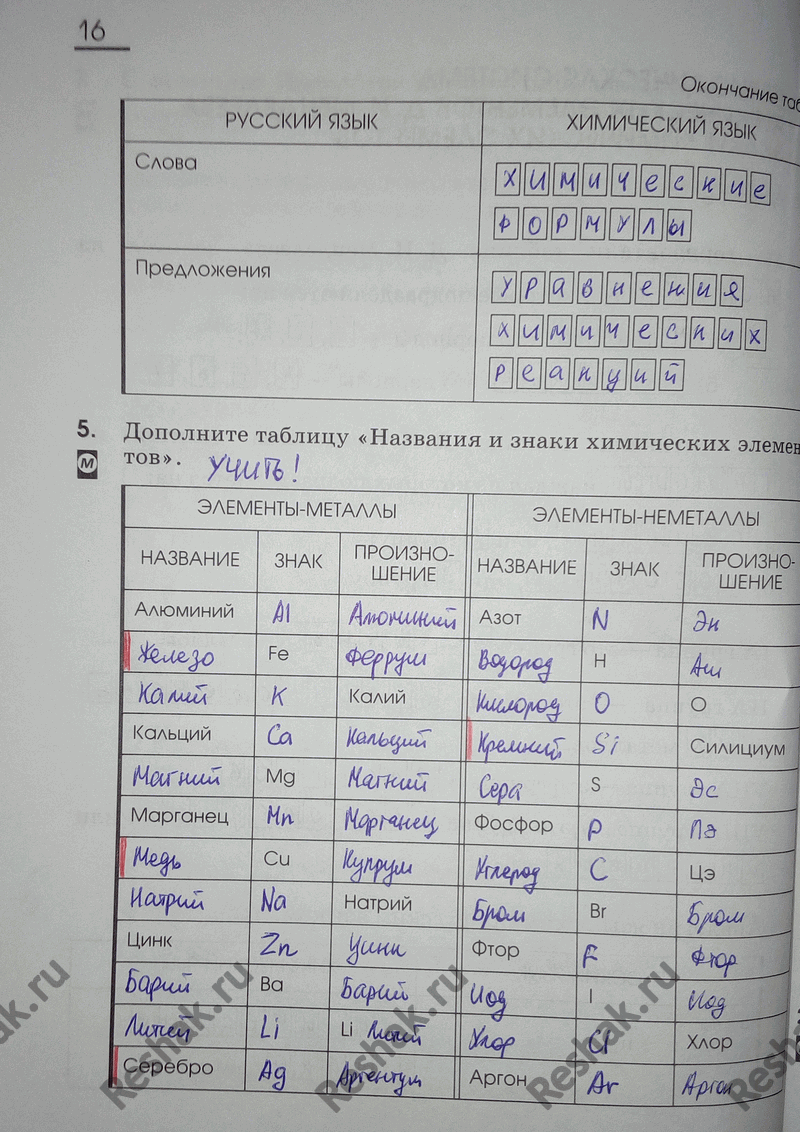 16
Окончание таб
РУССКИЙ ЯЗЫК ХИМИЧЕСКИЙ ЯЗЫК
Слова
Химические
формулы
Предложения
Уравнения
химических
реакций
5. Дополните таблицу «Названия и знаки химических элемен
М тов». УЧИТЬ!
ЭЛЕМЕНТЫ-МЕТАЛЛЫ ЭЛЕМЕНТЫ-НЕМЕТАЛЛЫ
НАЗВАНИЕ ЗНАК ПРОИЗНО-ШЕНИЕ НАЗВАНИЕ ЗНАК ПРОИЗНО-ШЕНИЕ
Алюминий Al Алюминий Азот N Эн
Железо Fe Феррум Водород H Аш
Калий K Калий Кислород O О
Кальций Ca Кальций Кремний Si Силициум
Магний Mg Магний Сера S Эс
Марганец Mn Марганец Фосфор P Пэ
Медь Cu Купрум Углерод C Цэ
Натрий Na Натрий Бром Br Бром
Цинк Zn Цинк Фтор F Фтор
Барий Ba Барий Иод I Иод
Литий Li Li Литий Хлор Cl Хлор
Серебро Ag Аргентум Аргон Ar Аргон
Reshak.ru
Reshak.ru
Reshak.ru
Reshak.ru